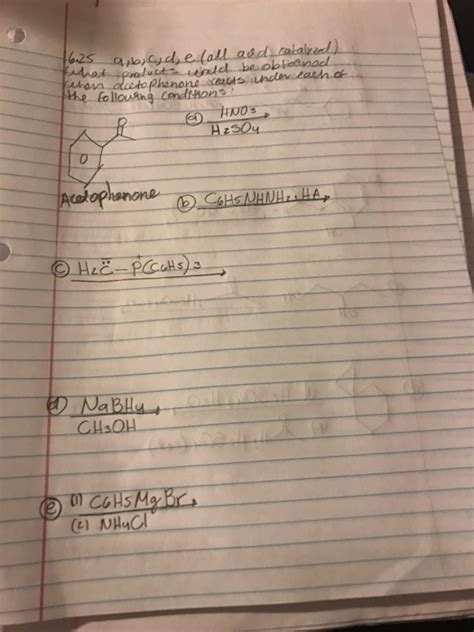 16.25 a,b,c,d,e (all acid catalyzed)
What products would be obtained
when acetophenone reacts under each of
the following conditions:
(a) HNO3
H2SO4
O
O
Acetophenone
(b) C6H5NHNH2, HA
(c) H2C̈ - P(C6H5)3
+
(d) NaBH4
CH3OH
(e) (1) C6H5MgBr
(2) NH4Cl